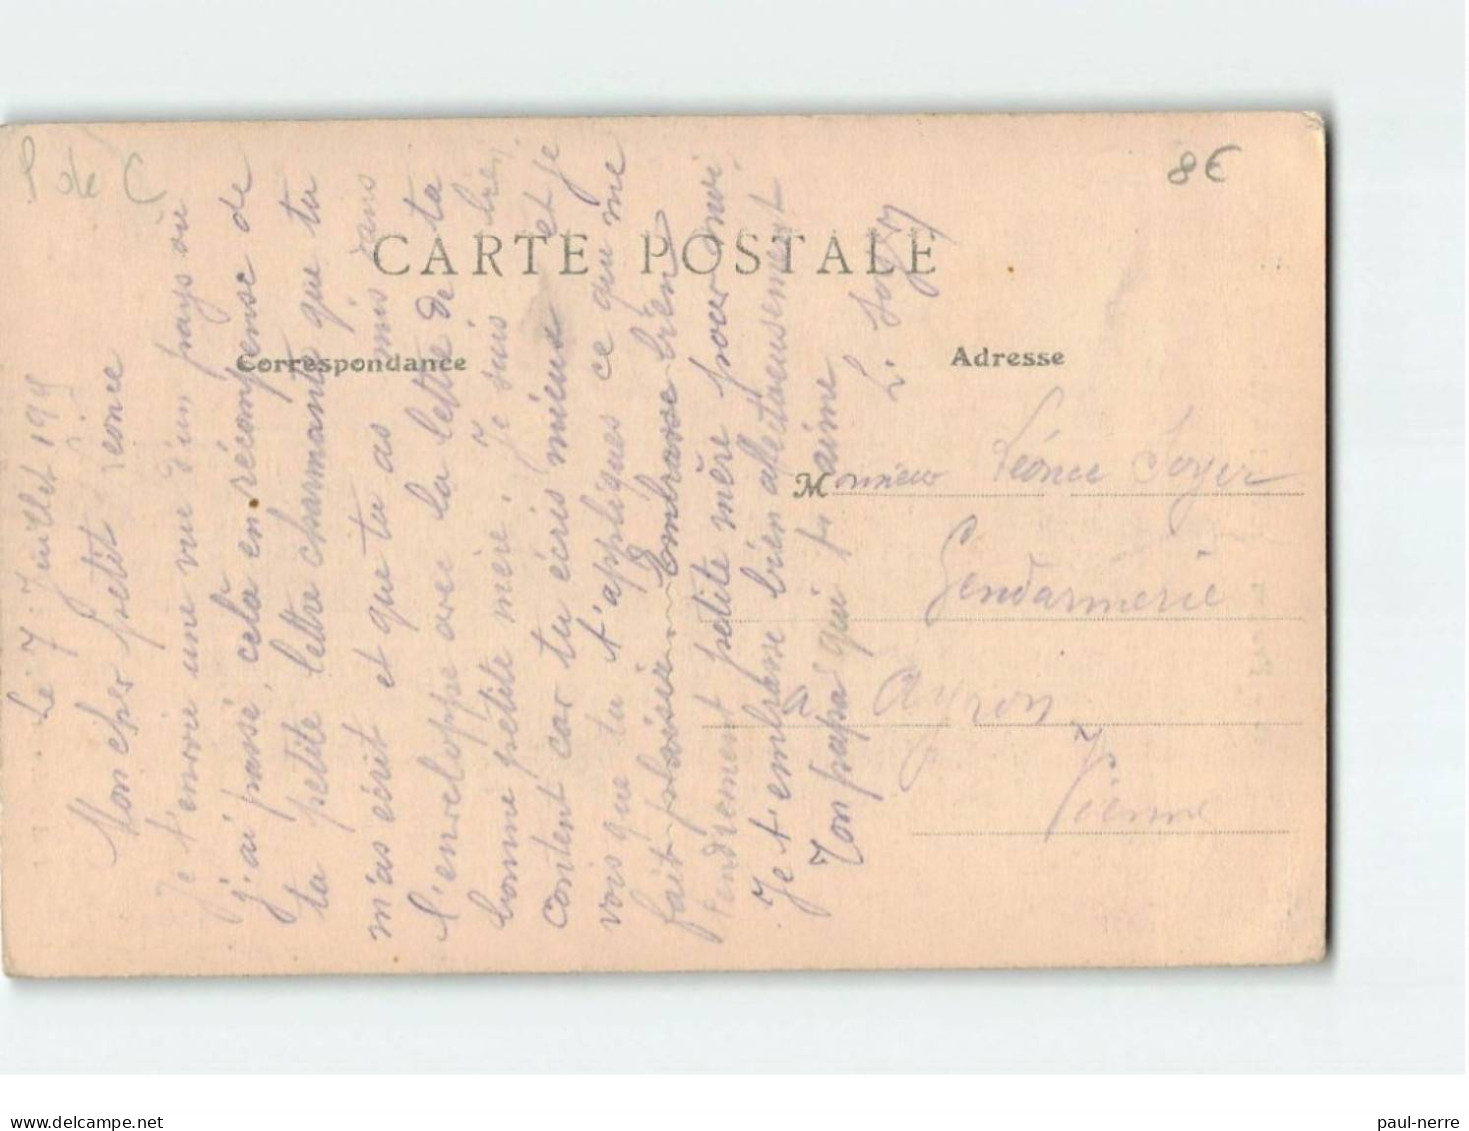 P de C
8€
CARTE POSTALE
Correspondance
Adresse
Le 7 Juillet 191
Mon cher petit Léonce
Je t'envoie une vue d'un pays où
j'ai passé, cela en récompense de
ta petite lettre charmante que tu
m'as écrit et que tu as mis dans
l'enveloppe avec la lettre de ta
bonne petite mère. Je suis bien
content car tu écris mieux et je
vois que tu t'appliques ce qui me
fait plaisir Embrasse bien
tendrement petite mère pour moi
Je t'embrasse bien affectueusement
Ton papa qui t'aime
L. Soyer
Monsieur Léonce Soyer
Gendarmerie
à Ayron
Vienne
delcampe.net
paul-nerre